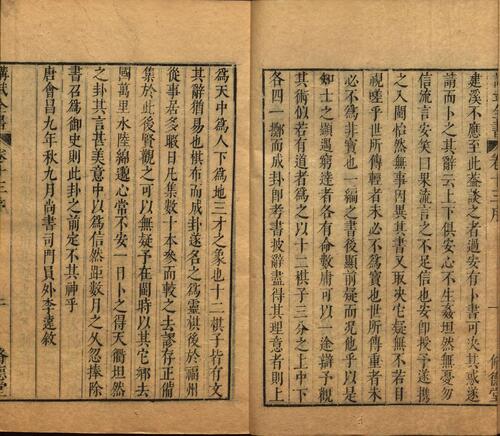 建溪不度此益談之者過安有卜書可決其或遂
請而卜之其辭云上下俱安心不生姦坦然無憂勿
信流言安笑曰果流言之不足信也安卽授予遂攜
之入閩怡然無事因異其書又取決它疑無不若目
視嗟乎世所傳輕者未必不爲寶也世所傳重者未
必不爲非寶也一編之書後顯前疑而况他乎以是
知士之顯遇窮達者各有命數庸可以一途辯予觀
其術似若有道者爲之以十二棋子三分之上中下
各四一擲而成卦卽考書披辭盡得其理意者則上
爲天中爲人下爲地三才之象也十二棋子皆有文
其辭猶易也棋布而成卦遂名之爲靈棋後於福州
從事居多暇日凡集數十本參而較之去謬存正備
集於此後賢觀之可以無疑予在閩時以其它鄉去
國萬里水陸綿邈心常不安一日卜之得天衢坦然
之卦其言甚美意中以爲信然距數月之久忽捧除
書召爲御史則此卦之前定不其神乎
唐會昌九年秋九月尚書司門員外李遠敘
卷十三